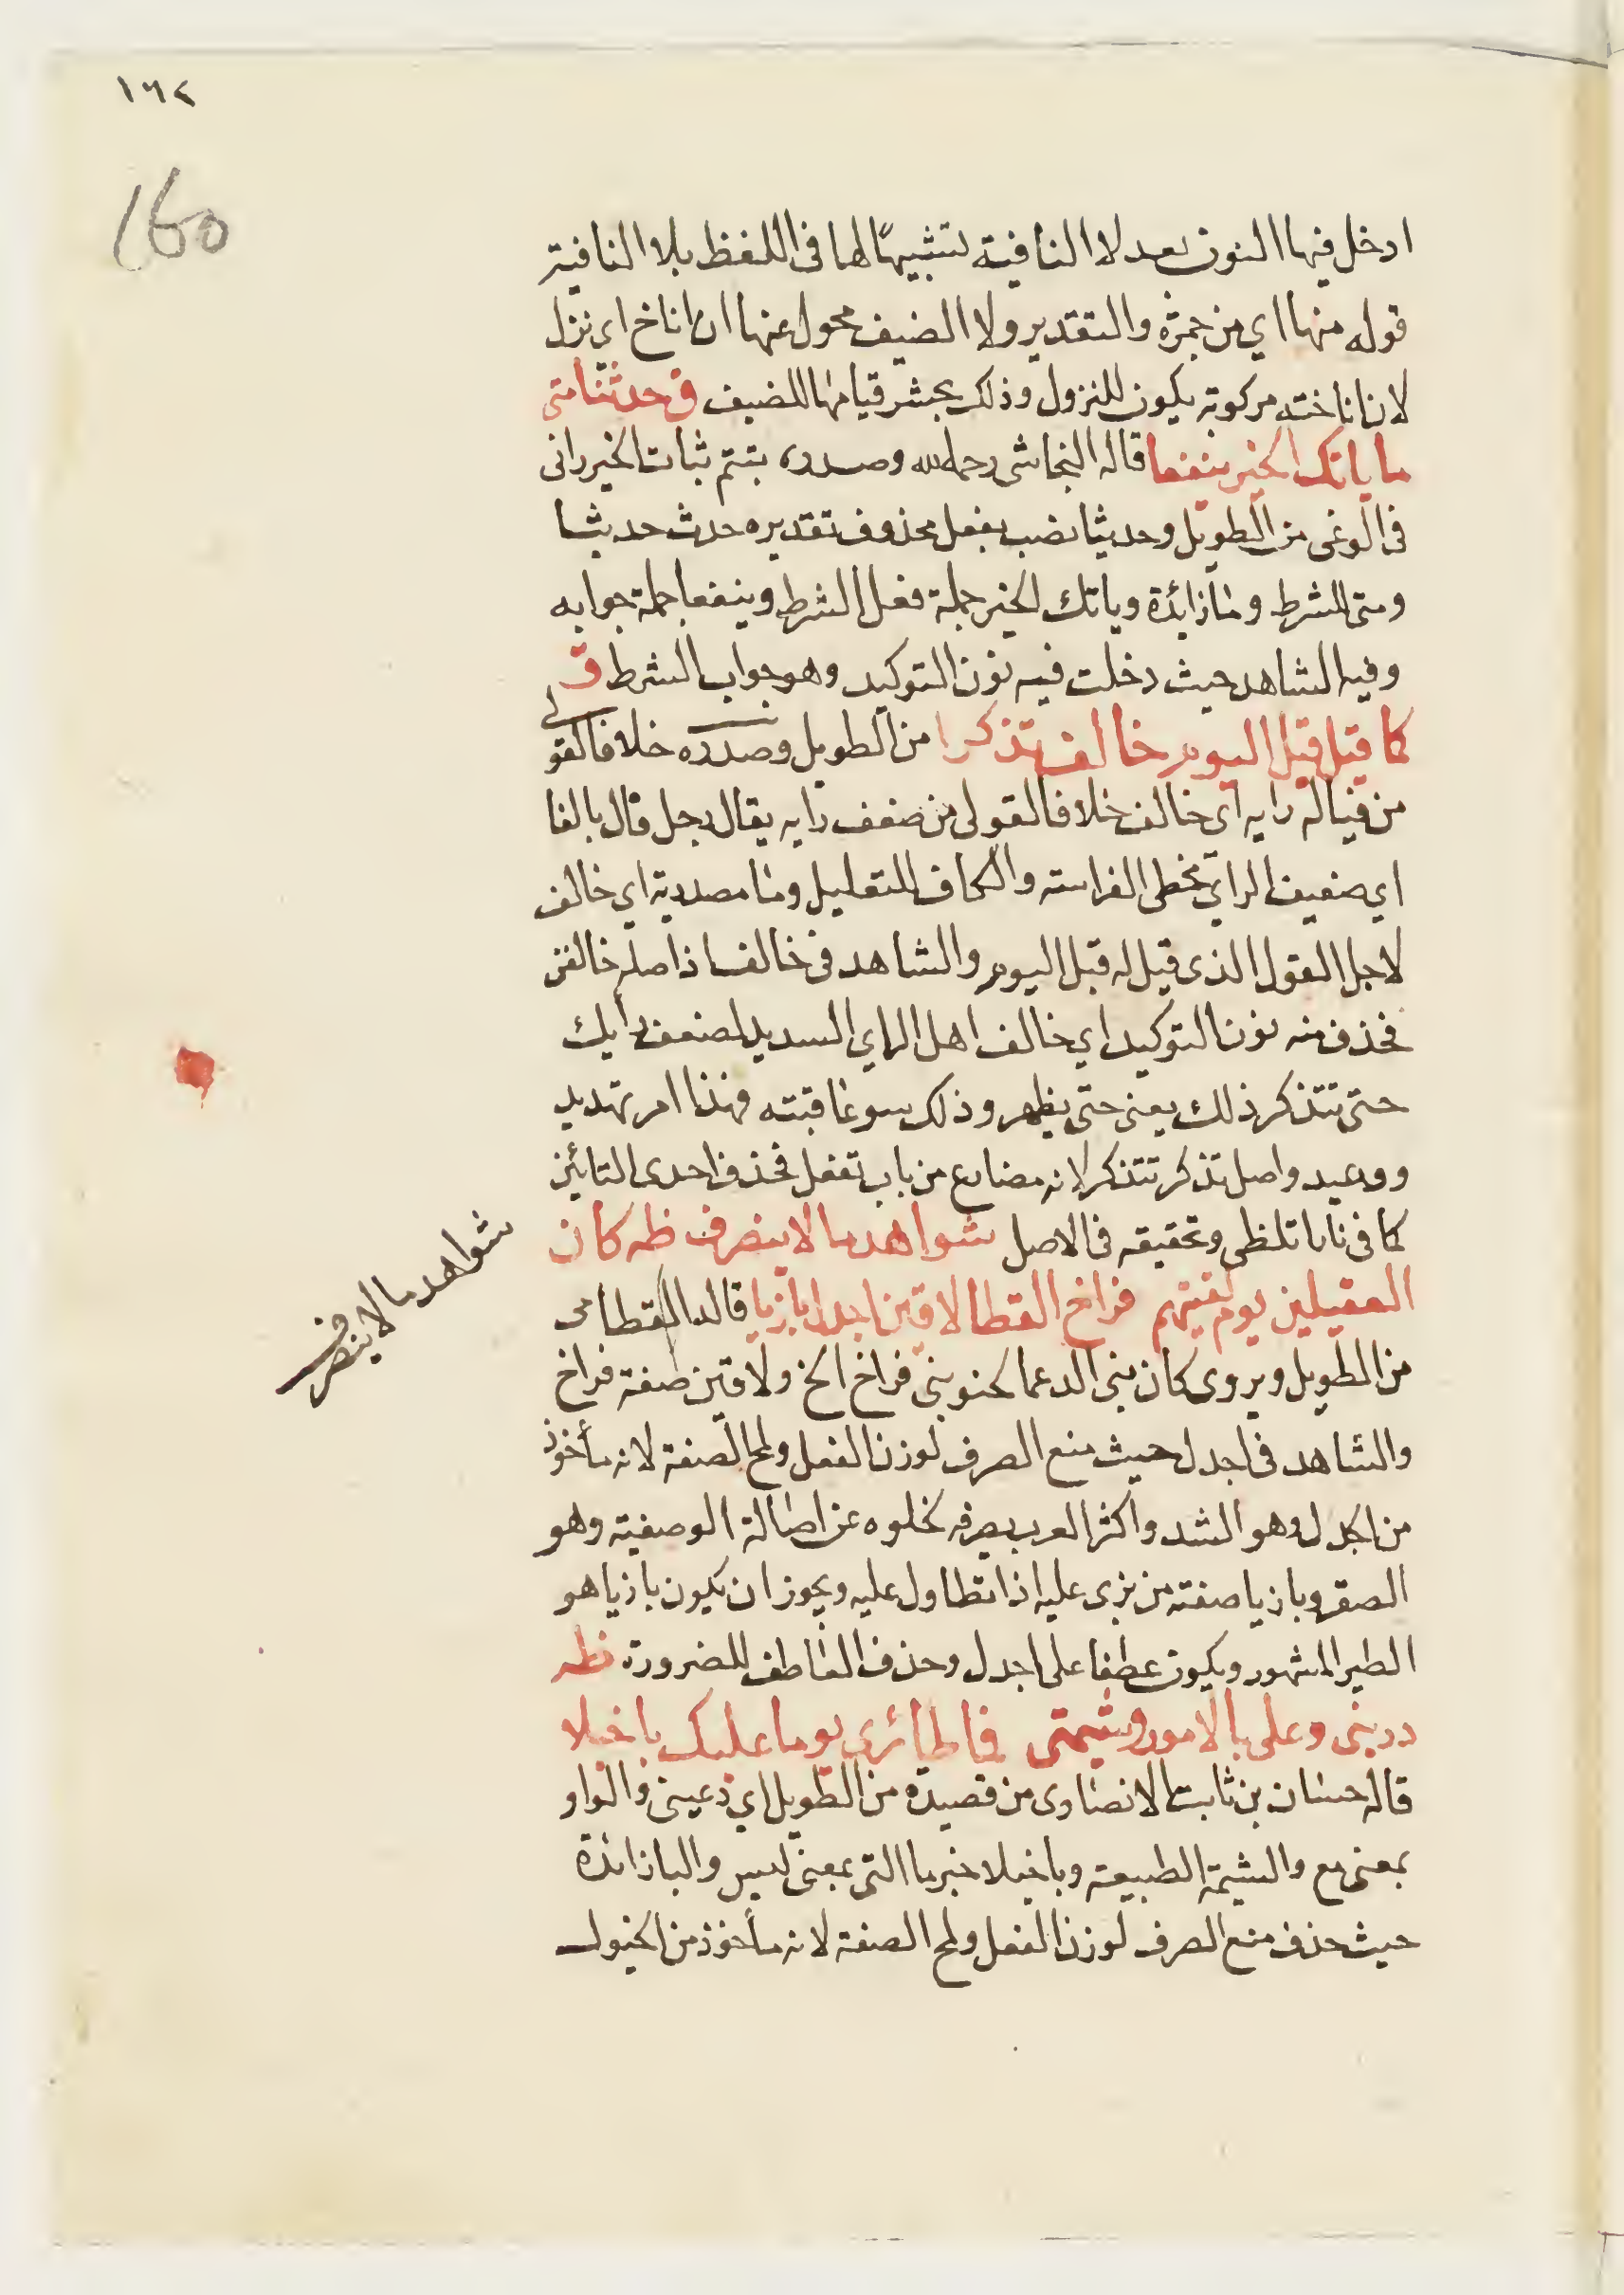 ١٦٢
160
ادخل فيها النون بعد لا النافية لتشبيهًا لها في اللفظ بلا النافية
قوله منها اي من جمرة والتقدير ولا الضيف محول عنها ان اناخ اى نزل
لان اناخته مركوبه يكون للنزول وذلك قيامها للضيف ق حديثا متى
ما ياتك الخير ينفعا قاله النجاشى رحمه الله وصدره ثبات الخيزرانى
فى الوغى من الطويل وحديثا نصب بفعل محذوف تقديره حدث حديثا
ومتى للشرط وما زائدة وياتك الخير جملة فعل الشرط وينفعا جملة جوابه
وفيه الشاهد حيث دخلت فيه نون التوكيد وهو جواب الشرط ق
كما قيل قبل اليوم خالف تذكرا من الطويل وصدره خلافا لقولى
من فيالة رايه اى خالف خلافا لقولى من ضعف رايه يقال رجل فال بالفا
اي ضعيف الراي مخطى الفراسته والكاف للتعليل وما مصدرية اي خالف
لاجل القول الذى قيل له قبل اليوم والشاهد فى خالف اذ اصله خالفن
فحذف منه نون التوكيد اي خالف اهل الراي السديد لضعف رايك
حتى تتذكر ذلك يعنى حتى يظهر وذلك سو عاقبته فهذا امر تهديد
ووعيد واصل تذكر تتذكر لانه مضارع من باب تفعل فحذف احدى التائين
كما فى نارا تلظى وتحقيقه فى الاصل شواهد ما لا ينصرف ظه كان
العقيليين يوم لقيتهم فراخ القطا لاقين اجدل بازيا قاله القطامى
من الطويل ويروى كان بنى الدعما فراخ الخ ولاقين صفة فراخ
والشاهد فى اجدل حيث منع الصرف لوزن الفعل ولمح الصفة لانه مأخوذ
من الجدل وهو الشد واكثر العرب يصرفه لخلوه عن اصالة الوصفية وهو
الصقر وبازيا صفته من بزى عليه اذا تطاول عليه ويجوز ان يكون بازيا هو
الطير المشهور ويكون عطفا على اجدل وحذف العاطف للضرورة ظه
ذرينى وعلمى بالامور وشيمتى فما طائرى يوما عليك باخيلا
قاله حسان بن ثابت الانصاري من قصيدة من الطويل اي دعينى والواو
بمعنى مع والشيمة الطبيعة وباخيلا خبر ما التى بمعنى ليس والبا زائدة
حيث حذف منع الصرف لوزن الفعل ولمح الصفة لانه مأخوذ من الخيول
شواهد ما لا ينصرف